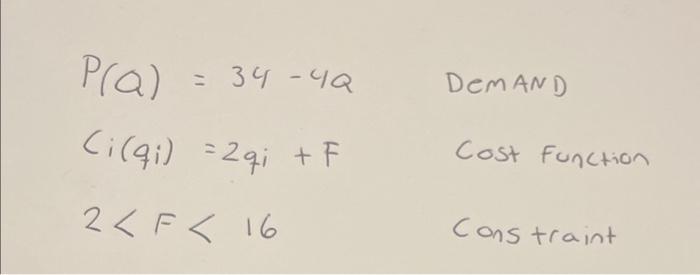 P(Q) = 34 - 4Q DEMAND
Ci(qi) = 2qi + F Cost Function
2 < F < 16 Constraint